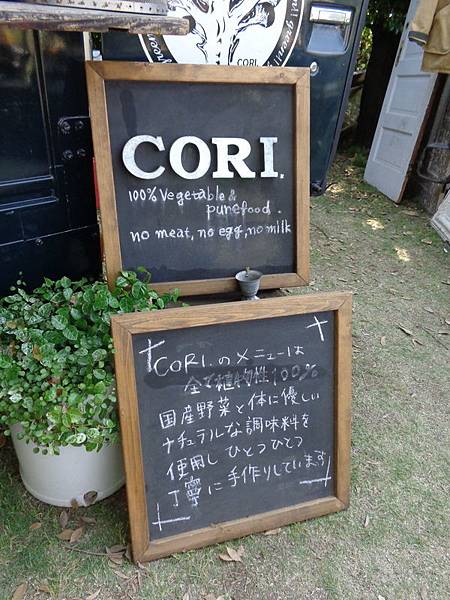 CORI.
CORI.
100% Vegetable &
purefood.
no meat, no egg, no milk
CORI.のメニューは
全て植物性100%
国産野菜と体に優しい
ナチュラルな調味料を
使用し ひとつひとつ
丁寧に手作りしています